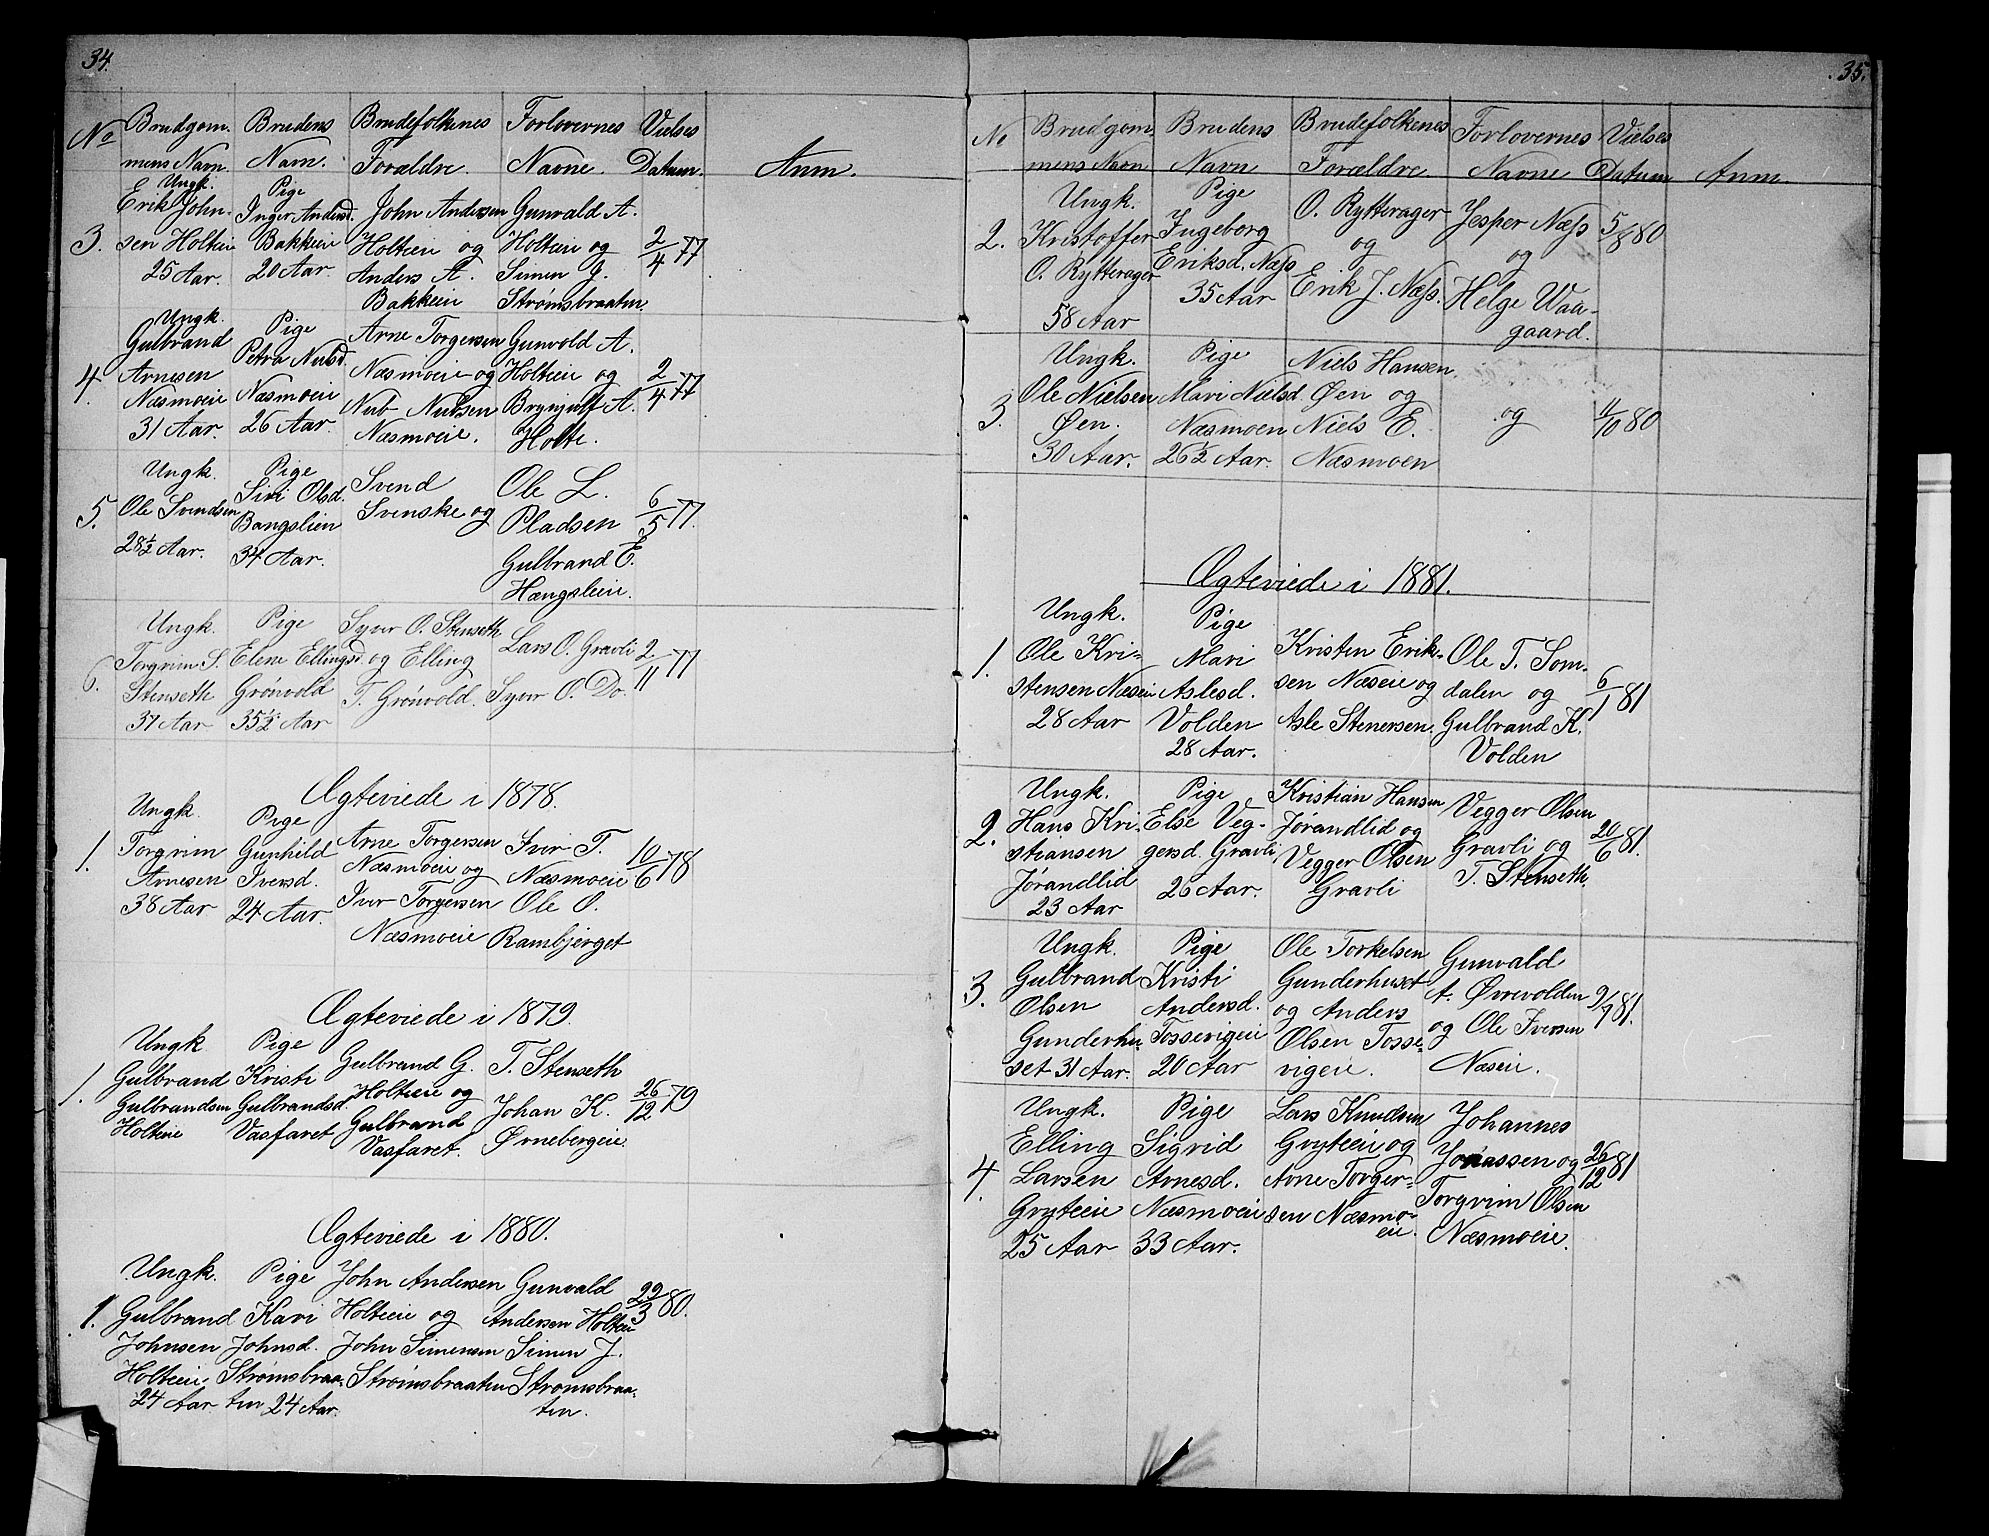 34.
No
Brudgom-
mens Navn.
Brudens
Navn.
Brudefolkenes
Forældre.
Forlovernes
Navne.
Vielses
Datum.
Anm.
3.
Ungk.
Erik John-
sen Holteie
25 Aar.
Pige
Inger Andersd.
Bakkeie
20 Aar.
John Andersen
Holteie og
Anders A.
Bakkeie
Gunvald A.
Holteie og
Simen G.
Strømsbraaten.
2/4 77
4.
Ungk.
Gulbrand
Arnesen
Næsmoeie
31 Aar.
Pige
Petra Nubsd.
Næsmoeie
26 Aar.
Arne Torgersen
Næsmoeie og
Nub Nubsen
Næsmoeie.
Gunvold A.
Holteie og
Brynjulf A.
Holte.
2/4 77
5.
Ungk.
Ole Svendsen
28½ Aar.
Pige
Siri Olsd.
Bangslien
34 Aar.
Svend
Svenske og
Ole L.
Pladsen
Gulbrand E.
Hængsleie.
6/5 77.
6.
Ungk.
Torgrim S.
Stenseth
37 Aar
Pige
Elene Ellingsd.
Grönvold
35½ Aar
Syver O. Stenseth
og Elling
T. Grönvold.
Lars O. Gravli
Syver O. Do.
2/11 77
Ægteviede i 1878.
1.
Ungk.
Torgrim
Arnesen
38 Aar
Pige
Gunhild
Iversd.
24 Aar.
Arne Torgersen
Næsmoeie og
Iver Torgersen
Næsmoeie
Iver T.
Næsmoeie
Ole O.
Rambjerget
10/6 78
Ægteviede i 1879.
1.
Ungk
Gulbrand
Gulbrandsen
Holteie
Pige
Kristi
Gulbrandsd.
Vasfaret
Gulbrand G.
Holteie og
Gulbrand
Vasfaret.
T. Stenseth
Johan K.
Ørnebergeie.
26/12 79
Ægteviede i 1880.
1.
Ungk.
Gulbrand
Johnsen
Holteie.
24 Aar
Pige
Kari
Johnsd.
Strømsbraa-
ten 24 Aar.
John Andersen
Holteie og
John Simensen
Strømsbraaten
Gunvald
Andersen Holteie
Simen J.
Strømsbraa-
ten.
29/3 80.
35.
No
Brudgom-
mens Navn
Brudens
Navn
Brudefolkenes
Forældre.
Forlovernes
Navne
Vielses
Datum
Anm.
2.
Ungk.
Kristoffer
O. Rytterager
58 Aar
Pige
Ingeborg
Eriksd. Næss
35 Aar
O. Rytterager
og
Erik J. Næss.
Jesper Næss
og
Helge Waa-
gaard.
5/8 80
3.
Ungk.
Ole Nielsen
Øen.
30 Aar.
Pige
Mari Nielsd.
Næsmoen
26½ Aar.
Niels Hansen
Øen og
Niels E.
Næsmoen
og
4/10 80
Ægteviede i 1881.
1.
Ungk.
Ole Kri-
stensen Næseie
28 Aar
Pige
Mari
Aslesd.
Volden
28 Aar.
Kristen Erik-
sen Næseie og
Asle Stenersen.
Ole T. Som-
dalen og
Gulbrand K.
Volden
6/1 81
2.
Ungk.
Hans Kri-
stiansen
Jørandlid
23 Aar
Pige
Else Veg-
gersd. Gravli
26 Aar.
Kristian Hansen
Jørandlid og
Vegger Olsen
Gravli
Vegger Olsen
Gravli og
T. Stenseth.
20/6 81.
3.
Ungk.
Gulbrand
Olsen
Gunderhu-
set 31 Aar.
Pige
Kristi
Andersd.
Tossevigeie
20 Aar
Ole Torkelsen
Gunderhuset
og Anders
Olsen Tosse-
vigeie.
Gunvald
A. Øvrevolden
og Ole Iversen
Næseie.
9/7 81.
4.
Ungk.
Elling
Larsen
Gryteeie
25 Aar
Pige
Sigrid
Arnesd.
Næsmoeie
33 Aar.
Lars Knudsen
Gryteeie og
Arne Torger-
sen Næsmo-
eie.
Johannes
Jonassen og
Torgrim Olsen
Næsmoeie.
26/12 81